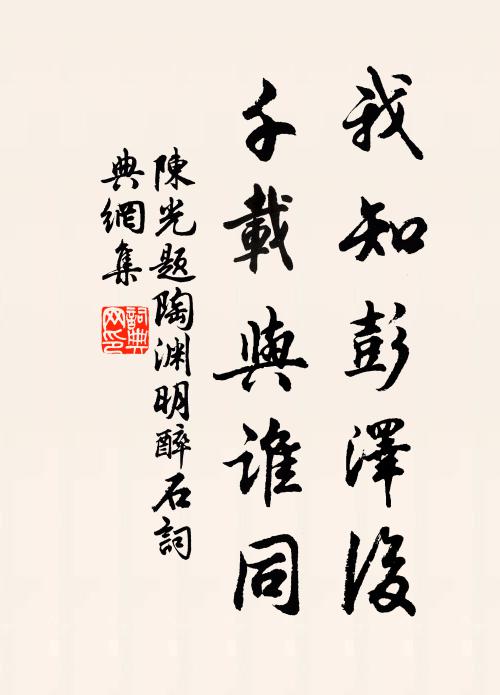 我知彭澤後
千載與誰同
陳光題陶渊明醉石詞
典網集
詞典
网印